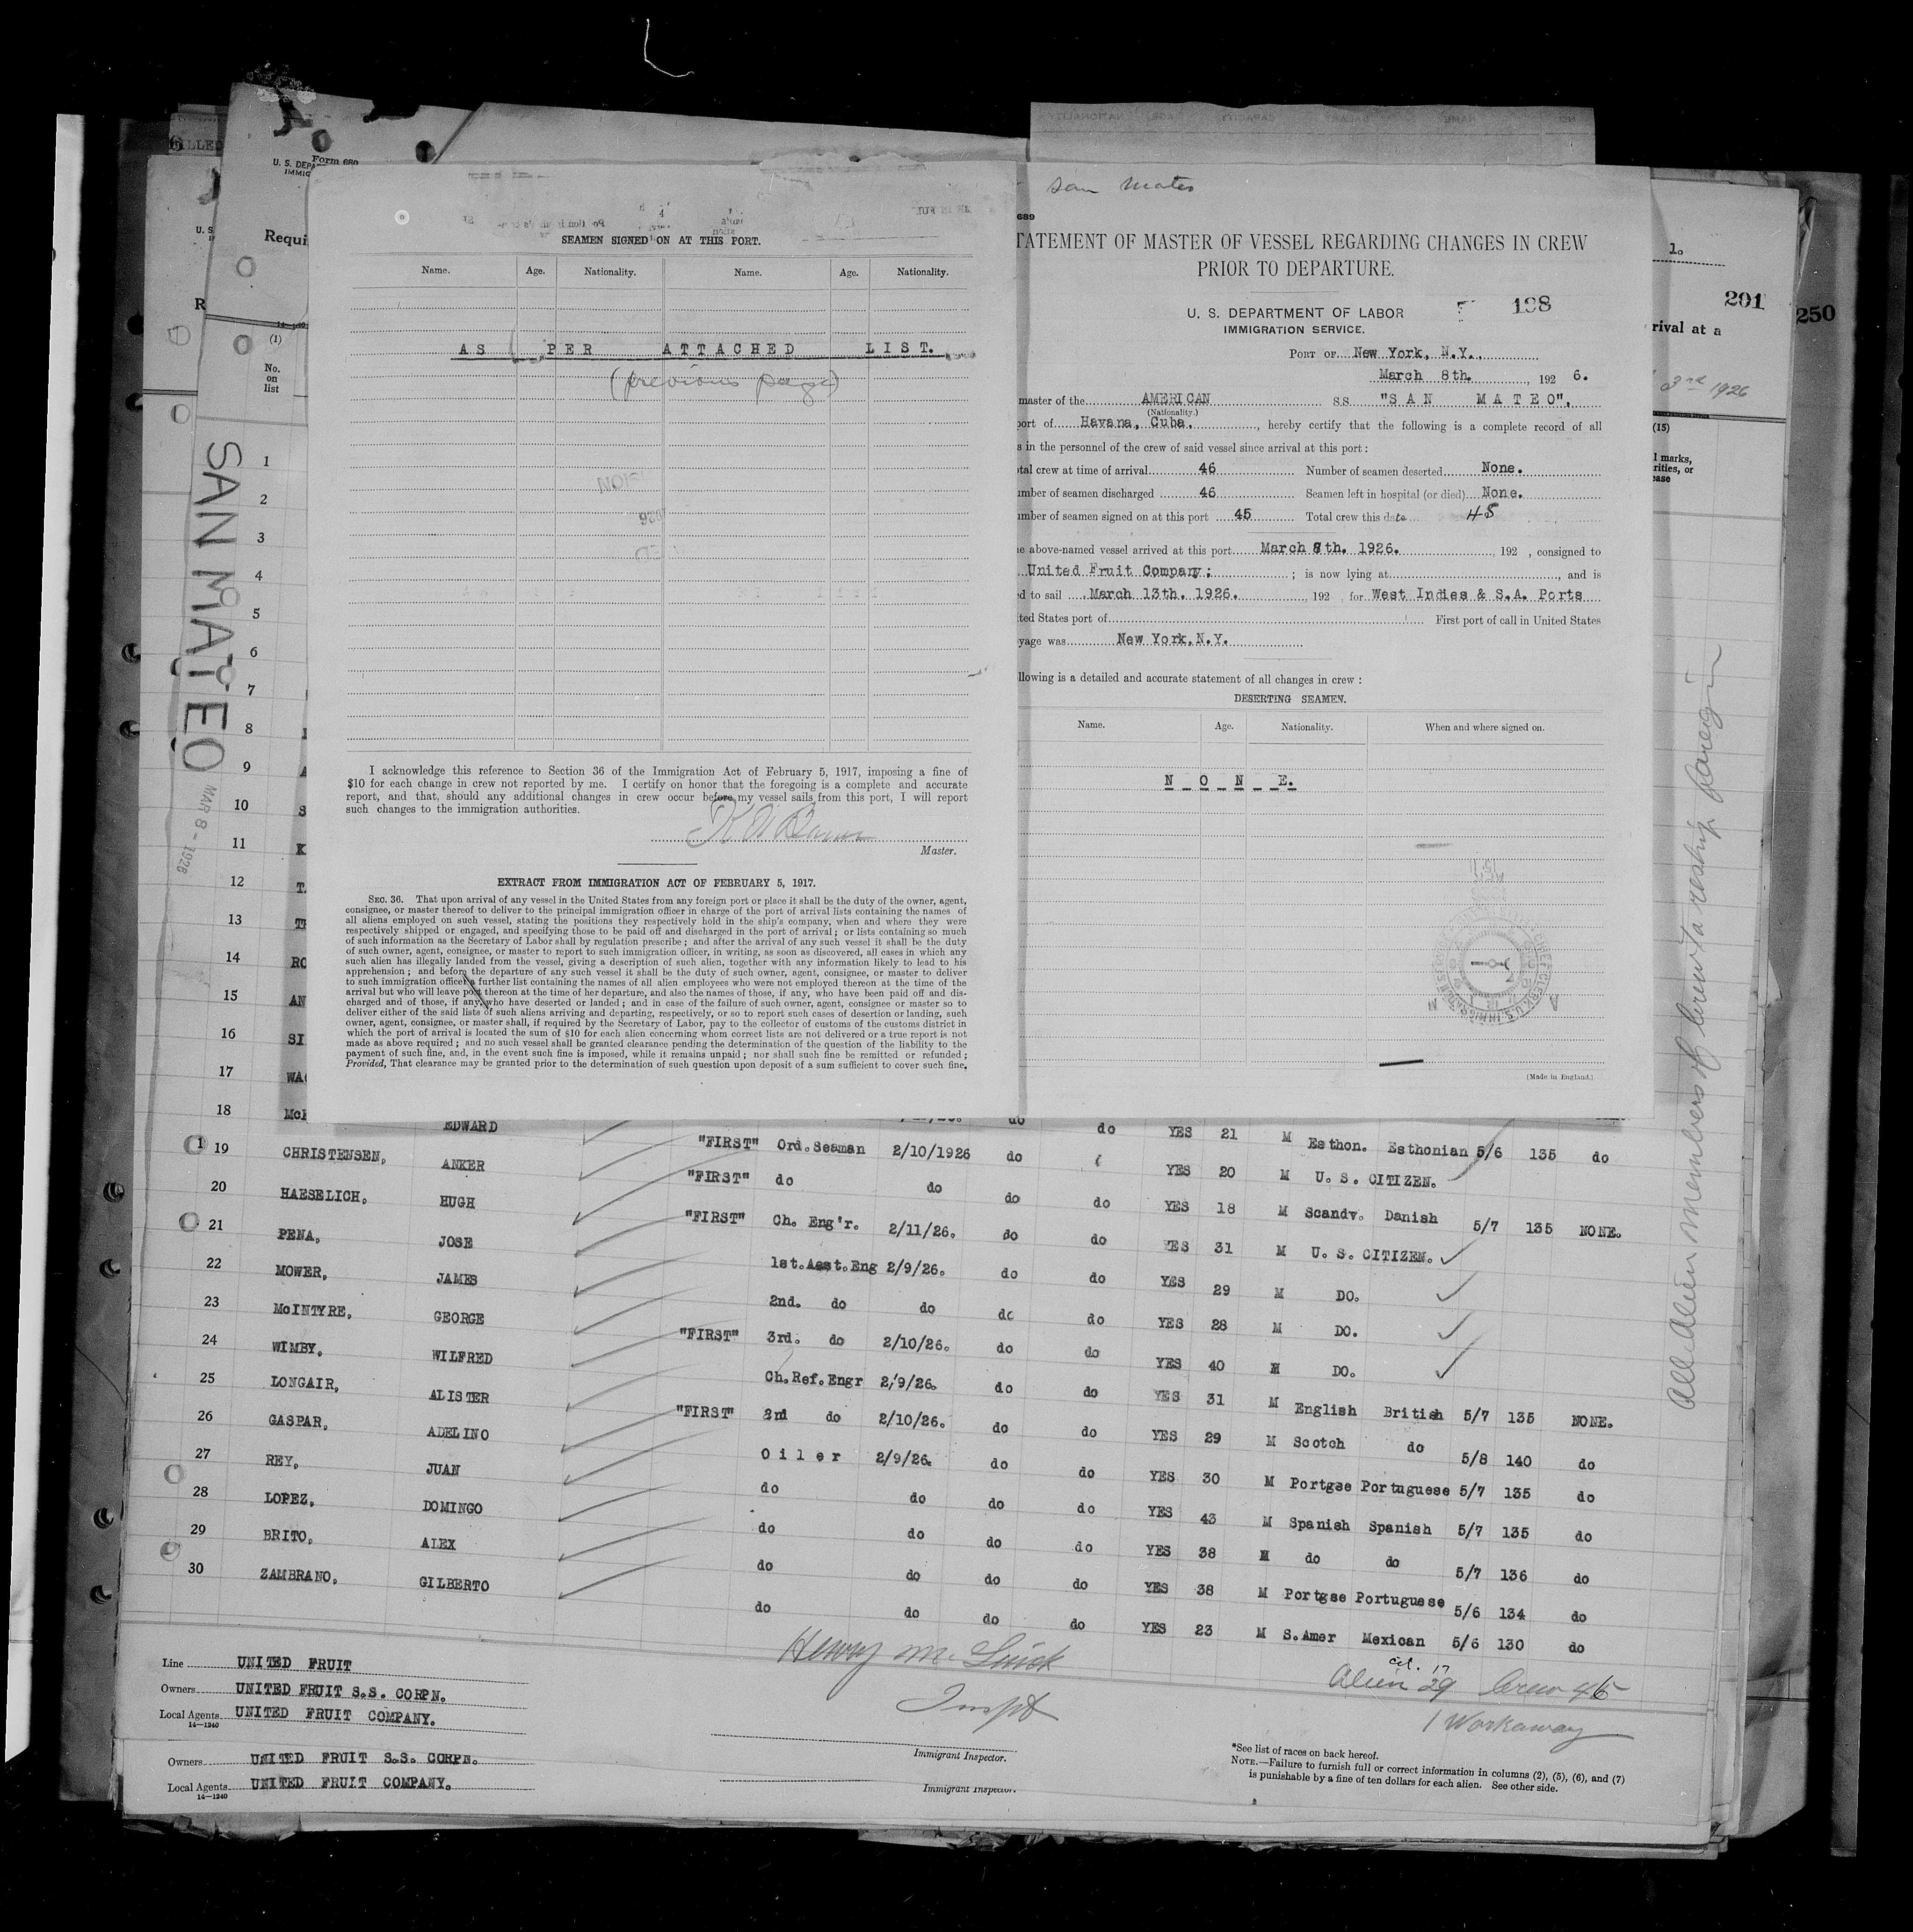 Form 689
U. S. DEPA
IMMIG
Requi
SEAMEN SIGNED ON AT THIS PORT.
Name. Age. Nationality. Name. Age. Nationality.
AS PER ATTACHED LIST.
(previous page)
I acknowledge this reference to Section 36 of the Immigration Act of February 5, 1917, imposing a fine of
$10 for each change in crew not reported by me. I certify on honor that the foregoing is a complete and accurate
report, and that, should any additional changes in crew occur before my vessel sails from this port, I will report
such changes to the immigration authorities.
Master.
EXTRACT FROM IMMIGRATION ACT OF FEBRUARY 5, 1917.
SEC. 36. That upon arrival of any vessel in the United States from any foreign port or place it shall be the duty of the owner, agent,
consignee, or master thereof to deliver to the principal immigration officer in charge of the port of arrival lists containing the names of
all aliens employed on such vessel, stating the positions they respectively hold in the ship's company, when and where they were
respectively shipped or engaged, and specifying those to be paid off and discharged in the port of arrival; or lists containing so much
of such information as the Secretary of Labor shall by regulation prescribe; and after the arrival of any such vessel it shall be the duty
of such owner, agent, consignee, or master to report to such immigration officer, in writing, as soon as discovered, all cases in which any
such alien has illegally landed from the vessel, giving a description of such alien, together with any information likely to lead to his
apprehension; and before the departure of any such vessel it shall be the duty of such owner, agent, consignee, or master to deliver
to such immigration officer a further list containing the names of all alien employees who were not employed thereon at the time of the
arrival but who will leave port thereon at the time of her departure, and also the names of those, if any, who have been paid off and dis-
charged and of those, if any, who have deserted or landed; and in case of the failure of such owner, agent, consignee or master so to
deliver either of the said lists of such aliens arriving and departing, respectively, or so to report such cases of desertion or landing, such
owner, agent, consignee, or master shall, if required by the Secretary of Labor, pay to the collector of customs of the customs district in
which the port of arrival is located the sum of $10 for each alien concerning whom correct lists are not delivered or a true report is not
made as above required; and no such vessel shall be granted clearance pending the determination of the question of the liability to the
payment of such fine, and, in the event such fine is imposed, while it remains unpaid; nor shall such fine be remitted or refunded;
Provided, That clearance may be granted prior to the determination of such question upon deposit of a sum sufficient to cover such fine.
San Mateo
689
TATEMENT OF MASTER OF VESSEL REGARDING CHANGES IN CREW
PRIOR TO DEPARTURE.
U. S. DEPARTMENT OF LABOR
IMMIGRATION SERVICE.
198
PORT OF New York, N.Y.
March 8th. , 192 6.
master of the AMERICAN S.S. "SAN MATEO",
(Nationality.)
port of Havana, Cuba. , hereby certify that the following is a complete record of all
s in the personnel of the crew of said vessel since arrival at this port:
tal crew at time of arrival 46 Number of seamen deserted None.
umber of seamen discharged 46 Seamen left in hospital (or died) None.
umber of seamen signed on at this port 45 Total crew this date 45
e above-named vessel arrived at this port March 8th. 1926. , 192 , consigned to
United Fruit Company; ; is now lying at , and is
d to sail March 13th. 1926. , 192 for West Indies & S.A. Ports
ted States port of First port of call in United States
yage was New York, N.Y.
llowing is a detailed and accurate statement of all changes in crew:
DESERTING SEAMEN.
Name. Age. Nationality. When and where signed on.
NONE.
[Made in England.]
1.
201
250
rival at a
3rd 1926
(15)
l marks,
rities, or
ease
All Alien members of Crew to reship foreign
SAN MATEO
MAR 8 - 1926
(1)
No.
on
list
1
2
3
4
5
6
7
8
9
10
11
12
13
14
15
16
17
18 EDWARD do do YES 21 M Esthon. Esthonian 5/6 135 do
19 CHRISTENSEN, ANKER "FIRST" Ord.Seaman 2/10/1926 do YES 20 M U. S. CITIZEN.
20 HAESELICH, HUGH "FIRST" do do do do YES 18 M Scandv. Danish 5/7 135 NONE.
21 PENA, JOSE "FIRST" Ch. Eng'r. 2/11/26. do do YES 31 M U. S. CITIZEN.
22 MOWER, JAMES 1st.Asst.Eng 2/9/26. do do YES 29 M DO.
23 McINTYRE, GEORGE 2nd. do do do do YES 28 M DO.
24 WIMBY, WILFRED "FIRST" 3rd. do 2/10/26. do do YES 40 M DO.
25 LONGAIR, ALISTER Ch.Ref.Engr 2/9/26. do do YES 31 M English British 5/7 135 NONE.
26 GASPAR, ADELINO "FIRST" 2rd do 2/10/26. do do YES 29 M Scotch do 5/8 140 do
27 REY, JUAN Oiler 2/9/26. do do YES 30 M Portgse Portuguese 5/7 135 do
28 LOPEZ, DOMINGO do do do do YES 43 M Spanish Spanish 5/7 135 do
29 BRITO, ALEX do do do do YES 38 M do do 5/7 136 do
30 ZAMBRANO, GILBERTO do do do do YES 38 M Portgse Portuguese 5/6 134 do
do do do do YES 23 M S.Amer Mexican 5/6 130 do
Line UNITED FRUIT
Owners UNITED FRUIT S.S. CORPN.
Local Agents UNITED FRUIT COMPANY.
14—1240
Inspt
Immigrant Inspector.
Alien 29 Crew 46
1 Workaway
Owners UNITED FRUIT S.S. CORPN.
Local Agents UNITED FRUIT COMPANY.
14—1240
Immigrant Inspector.
*See list of races on back hereof.
NOTE.—Failure to furnish full or correct information in columns (2), (5), (6), and (7)
is punishable by a fine of ten dollars for each alien. See other side.